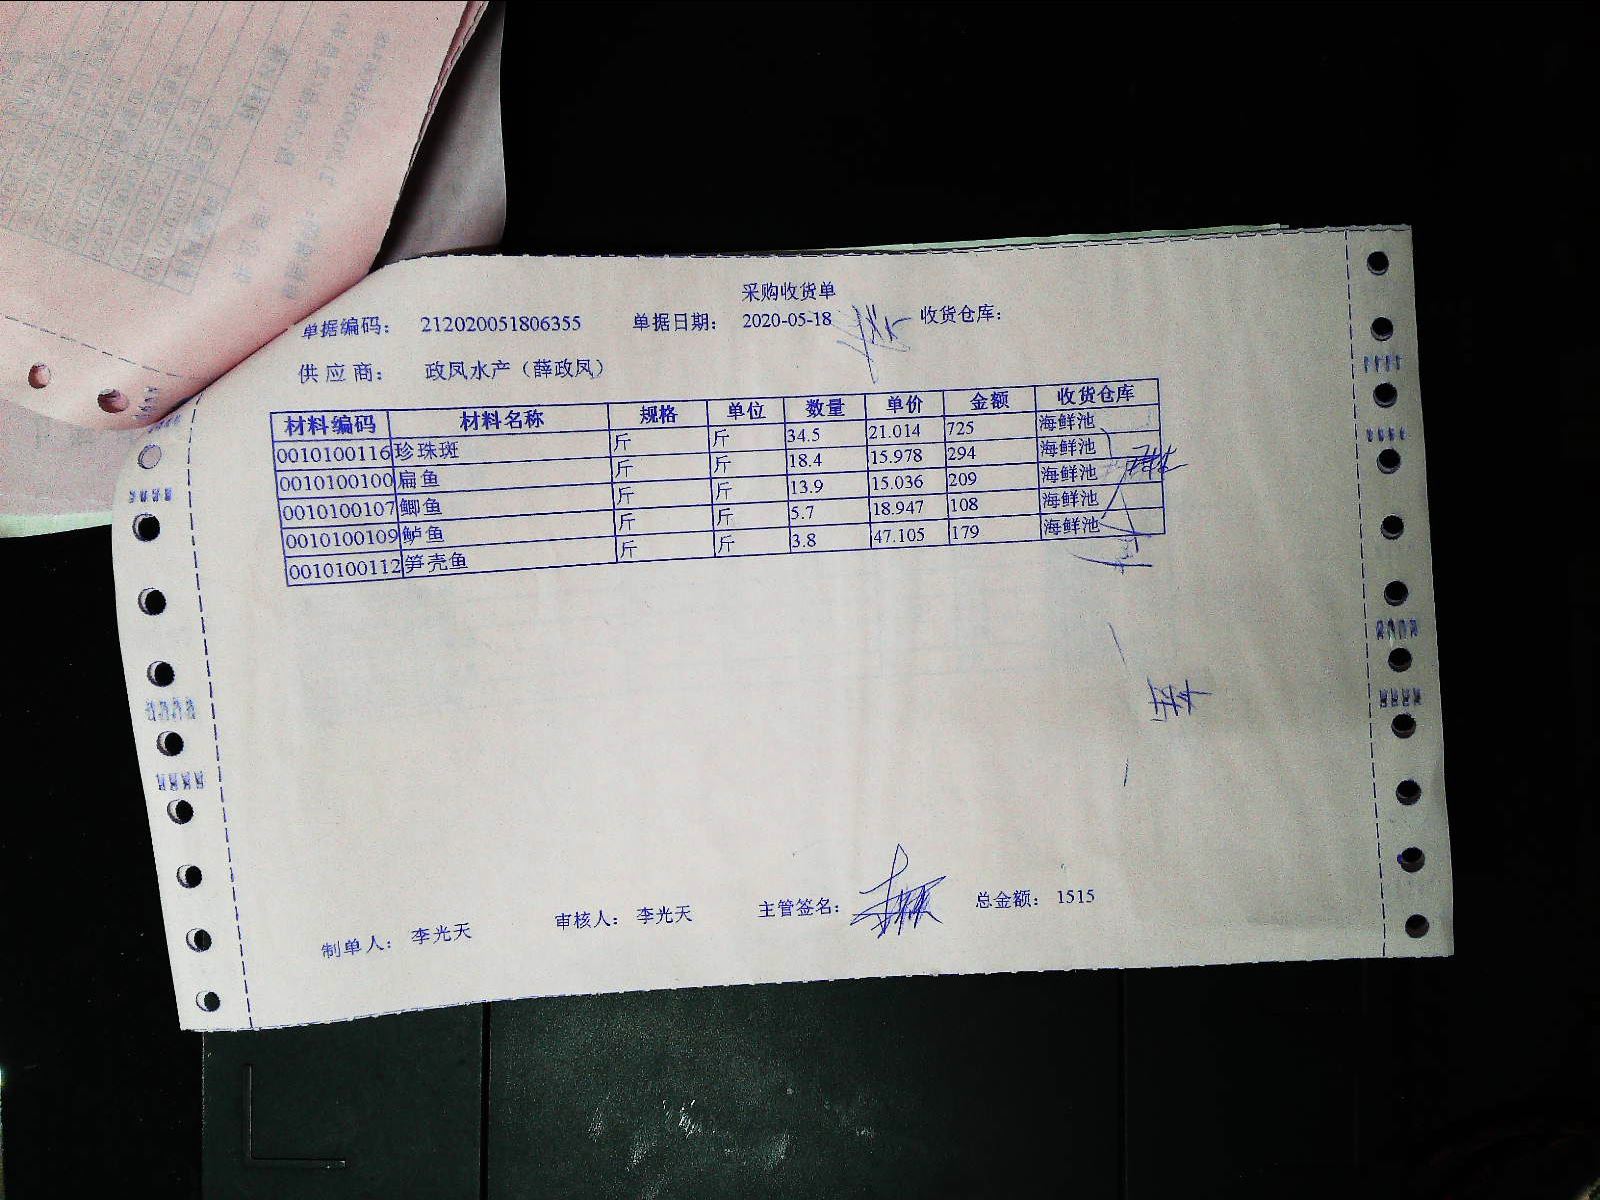 采购收货单
单据编码： 212020051806355 单据日期： 2020-05-18 收货仓库：
供应商： 政凤水产（薛政凤）
材料编码 材料名称 规格 单位 数量 单价 金额 收货仓库
0010100116 珍珠斑 斤 斤 34.5 21.014 725 海鲜池
0010100100 扁鱼 斤 斤 18.4 15.978 294 海鲜池
0010100107 鲫鱼 斤 斤 13.9 15.036 209 海鲜池
0010100109 鲈鱼 斤 斤 5.7 18.947 108 海鲜池
0010100112 笋壳鱼 斤 斤 3.8 47.105 179 海鲜池
制单人： 李光天 审核人： 李光天 主管签名： 总金额： 1515